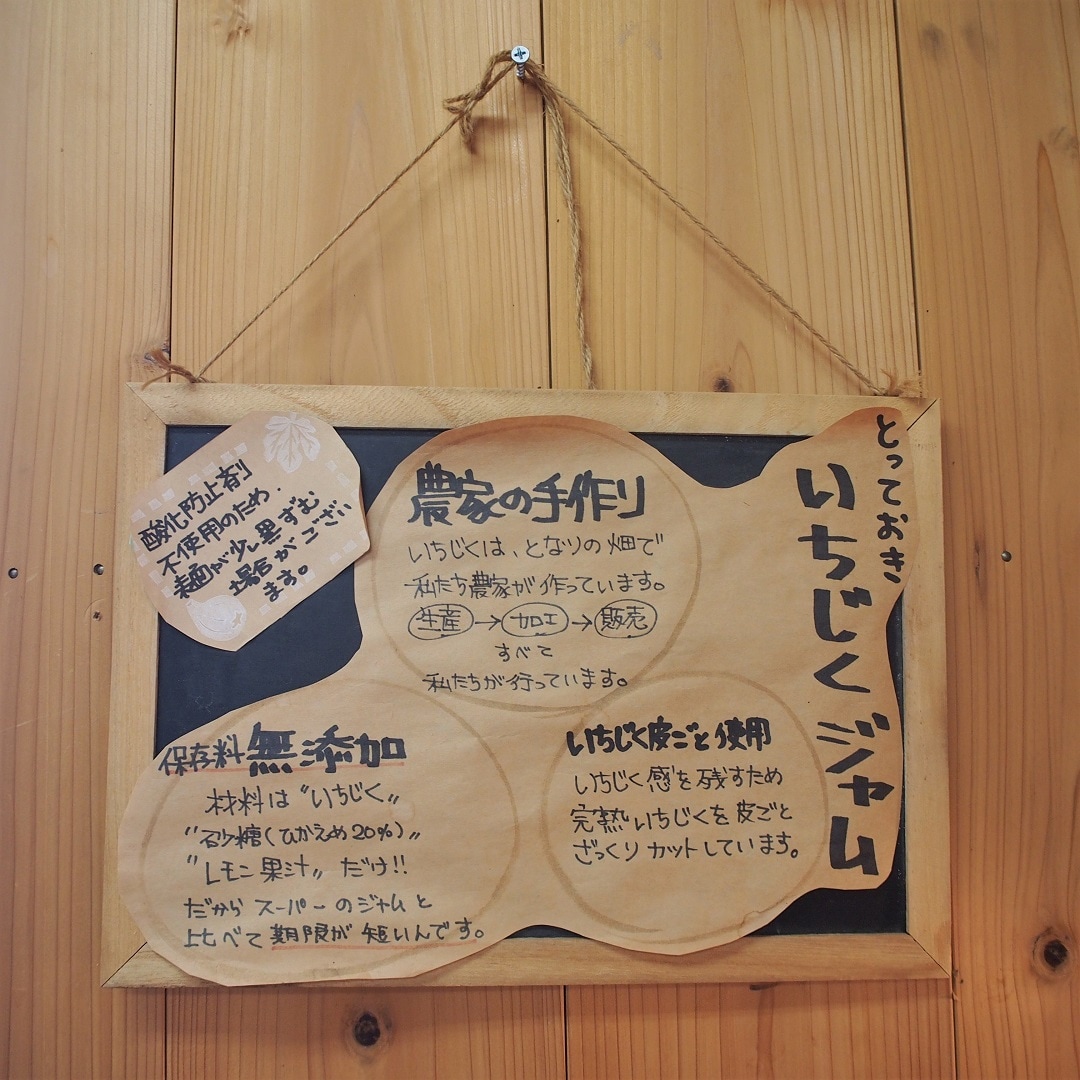 とっておき
いちじくジャム
農家の手作り
いちじくは、となりの畑で
私たち農家が作っています。
生産→加工→販売
すべて
私たちが行っています。
酸化防止剤
不使用のため、
表面が少し黒ずむ
場合がござい
ます。
保存料無添加
材料は〝いちじく〟
〝砂糖(ひかえめ20%)〟
〝レモン果汁〟だけ!!
だからスーパーのジャムと
比べて期限が短いんです。
いちじく皮ごと使用
いちじく感を残すため
完熟いちじくを皮ごと
ざっくりカットしています。